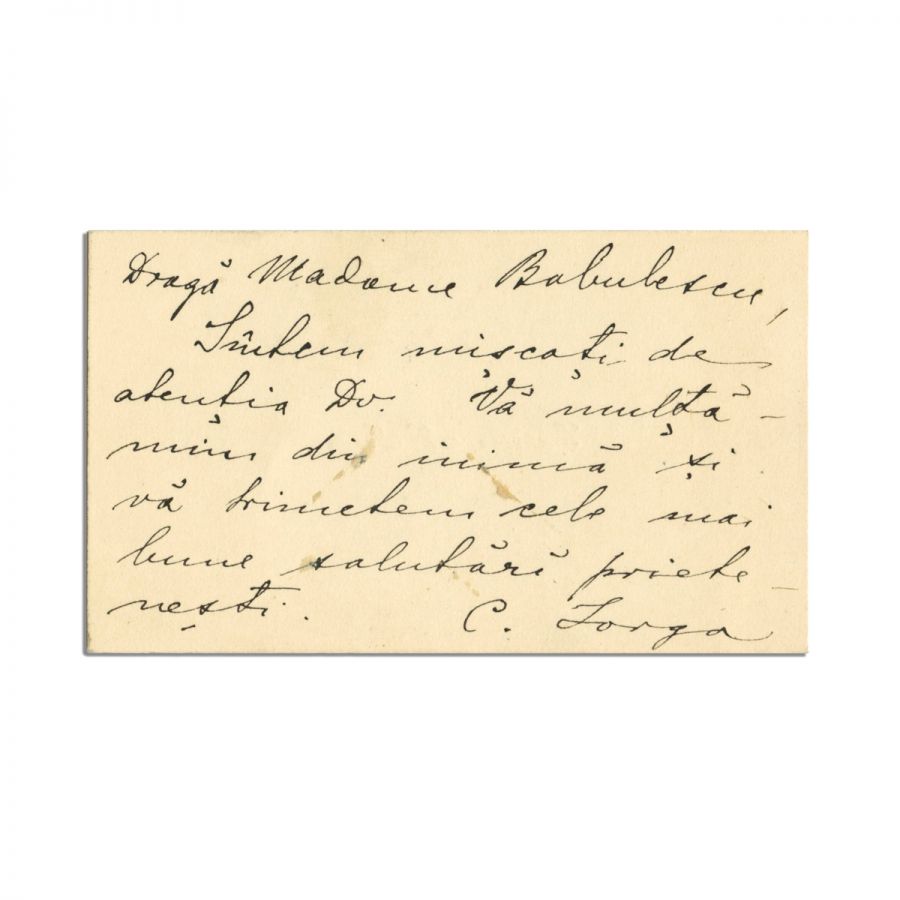 Dragă Madame Babulescu,
Sîntem mișcați de
atenția Dv. Vă mulță-
mim din inimă și
vă trimetem cele mai
bune salutări priete-
nești. C. Iorga